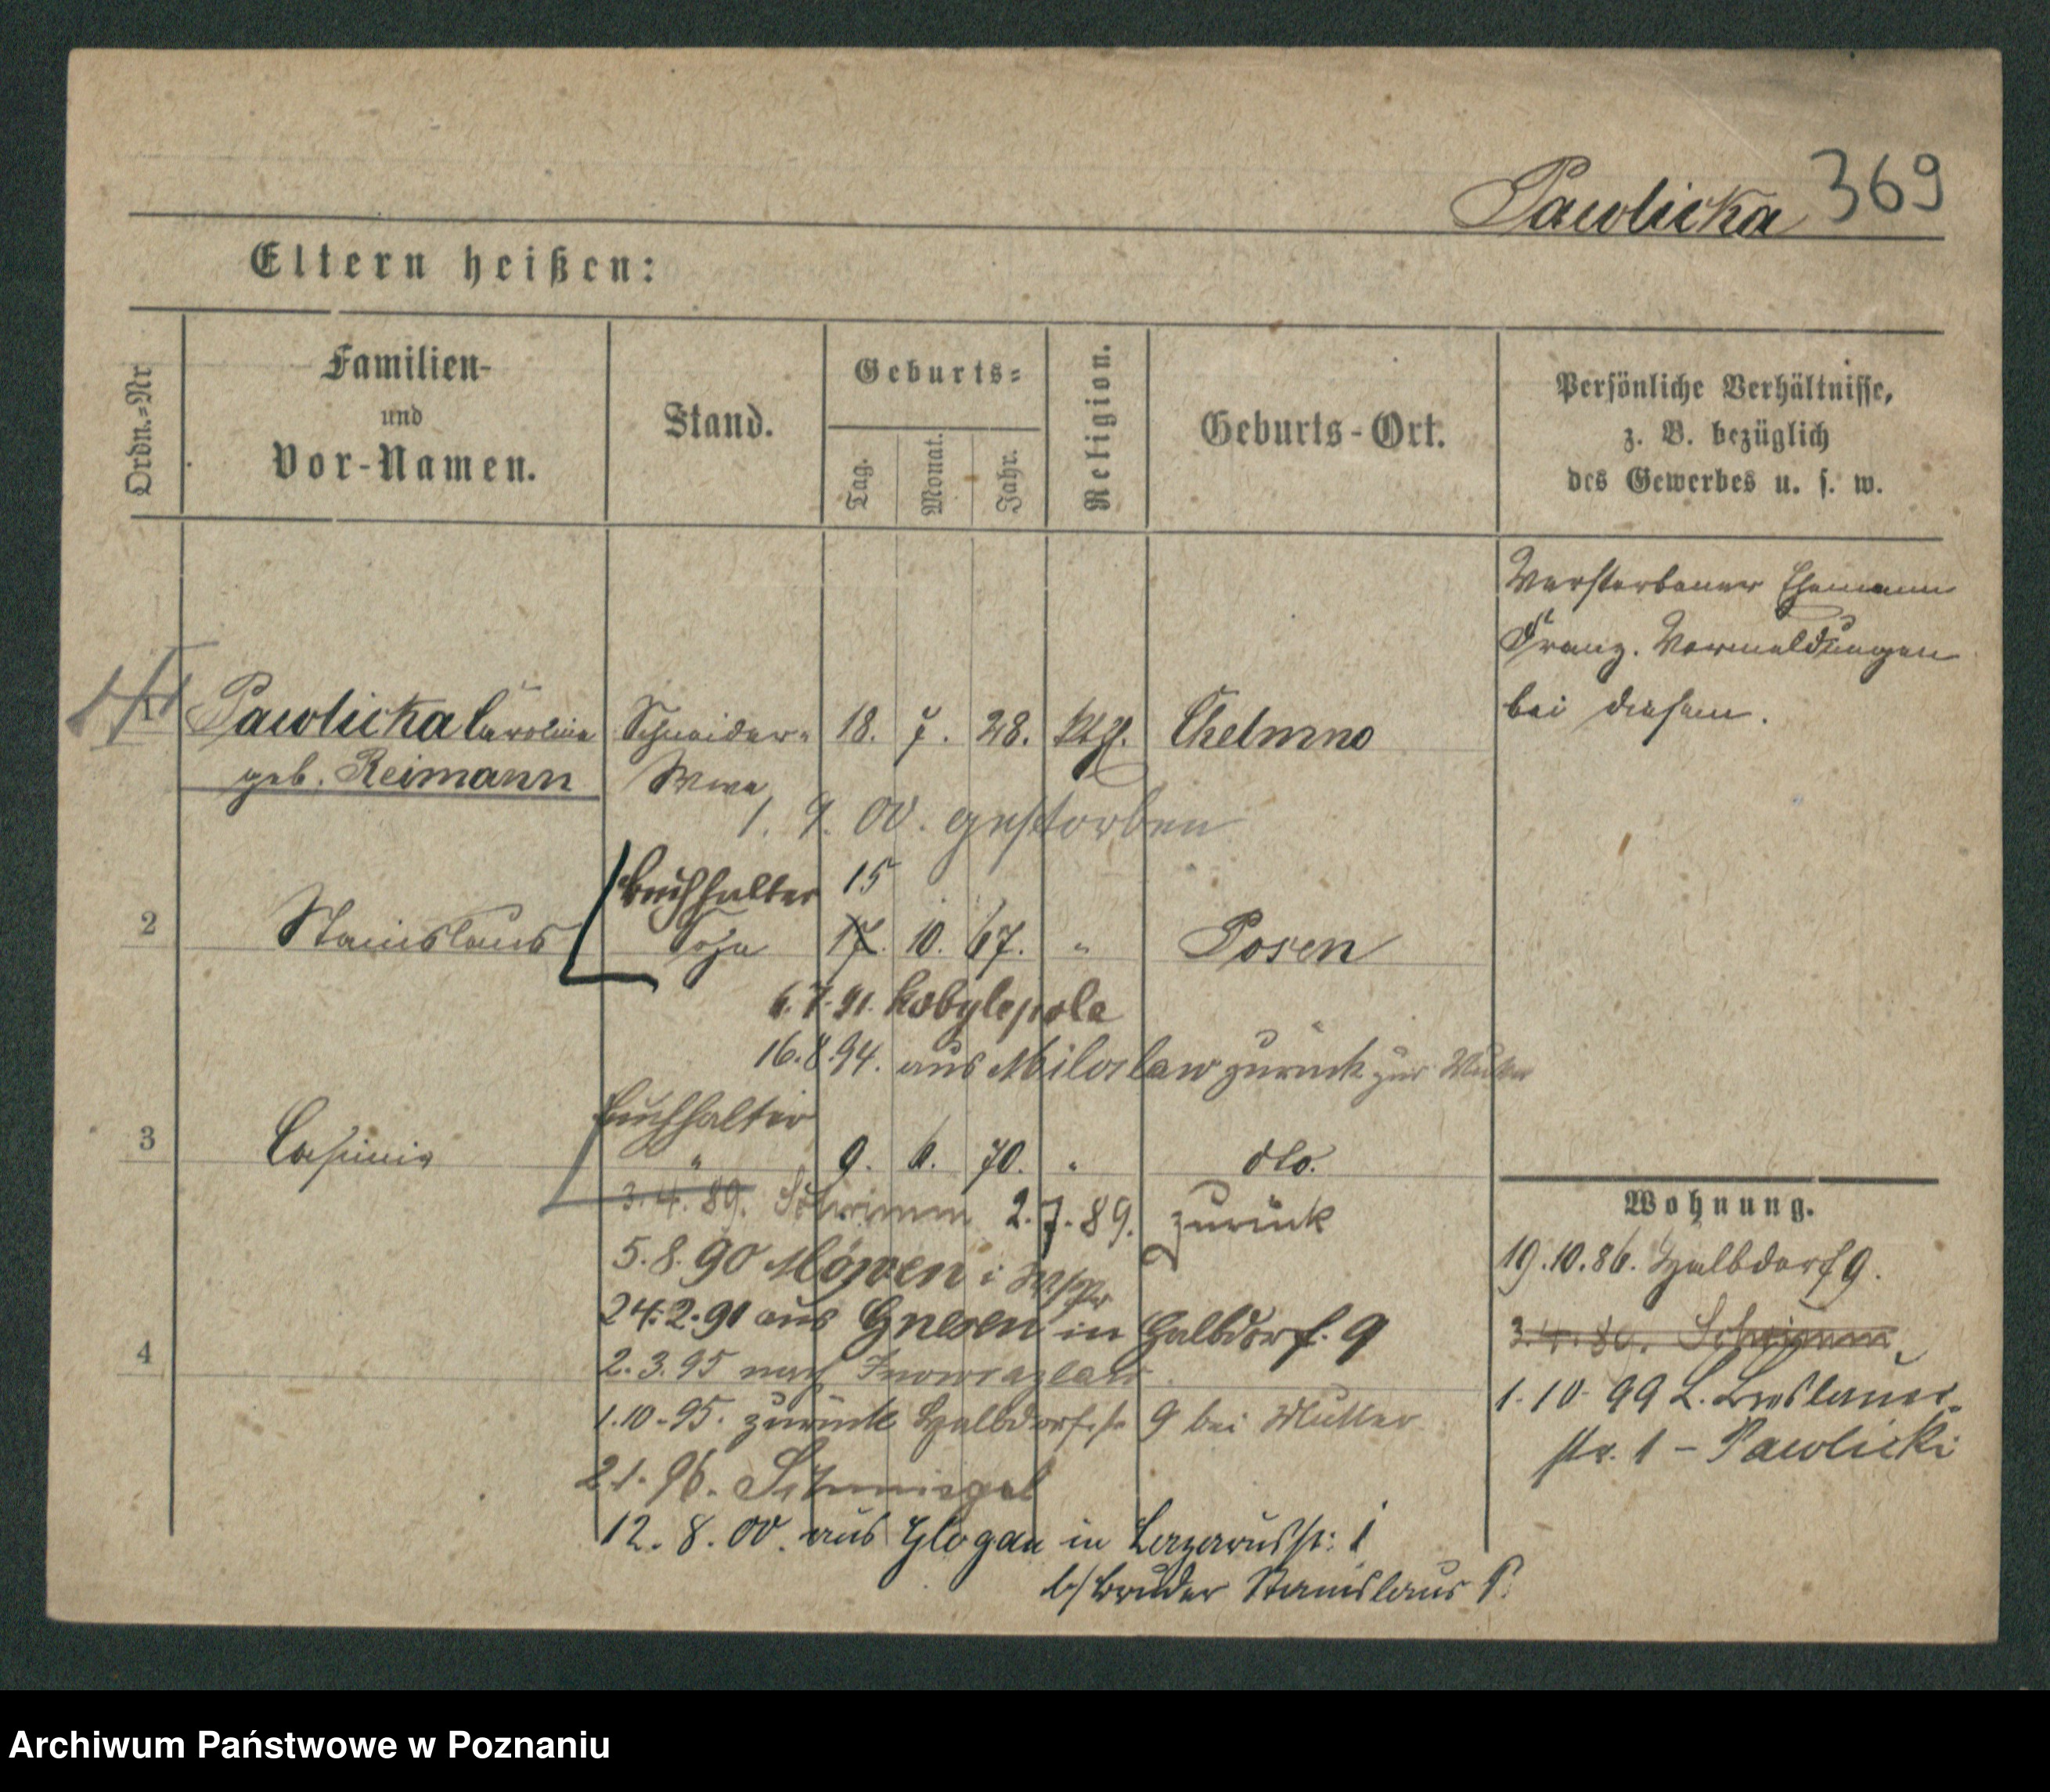 Pawlicka 369
Eltern heißen:
Ordn.-Nr
Familien-
und
Vor-Namen.
Stand.
Geburts-
Tag.
Monat.
Jahr.
Religion.
Geburts-Ort.
Persönliche Verhältnisse,
z. B. bezüglich
des Gewerbes u. s. w.
Verstorbener Ehemann
Franz. Vormeldungen
bei diesem.
1 Pawlicka Caroline Schneider- 18. 7. 28. kth. Chelmno
geb. Reimann Wwe
1. 9. 00. gestorben
Buchhalter 15
2 Stanislaus Sohn 17. 10. 67. " Posen
6.7.91. Kobylepole
16.8.94. aus Miloslaw zurück zur Mutter
Buchhalter
3 Casimir " 9. 6. 70. " dto.
3.4.89. Schrimm 2.7.89. zurück
5.8.90 Löpen i
24.2.91 aus Gnesen in Halbdorf. 9
4
2.3.95 nach Inowrazlaw.
1.10.95. zurück Halbdorfstr 9 bei Mutter
2.1.96. Schmiegel
12.8.00. aus Glogau in Lazarusstr. 1
b/ Bruder Stanislaus P.
Wohnung.
19.10.86. Halbdorf 9.
3.4.89. Schrimm
1.10.99 L. Breslauer-
str. 1 – Pawlicki
Archiwum Państwowe w Poznaniu